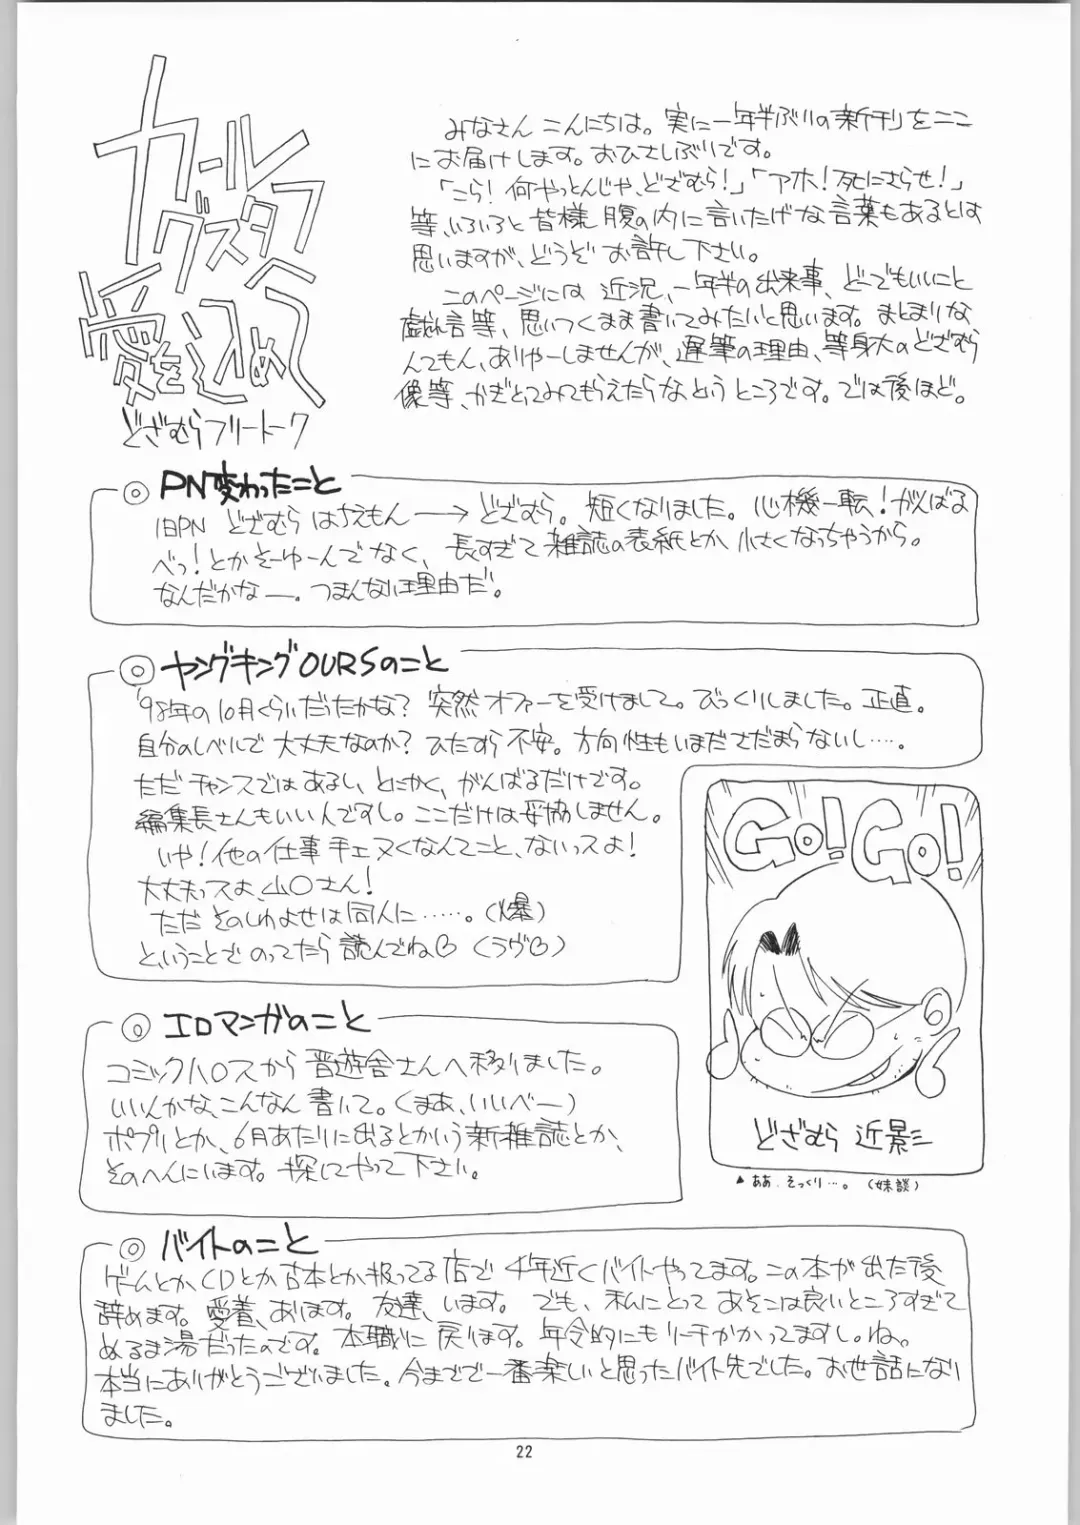 カール
グスタフ
愛を込めて
どざむらフリートーク
みなさん こんにちは。実に一年半ぶりの新刊をここ
にお届けします。おひさしぶりです。
「こら!何やっとんじゃ、どざむら!」「アホ!死にさらせ!」
等、いろいろと皆様 腹の内に言いたげな言葉もあるとは
思いますが、どうぞ お許し下さい。
このページには 近況、一年半の出来事、どーでもいいこと
戯れ言等、思いつくまま書いてみたいと思います。まとまりな
んてもん、ありゃーしませんが、遅筆の理由、等身大のどざむら
像等、かぎとってみてもらえたらなというところです。では後ほど。
◎ PN変わったこと
旧PN どざむら はちえもん ─→ どざむら。短くなりました。心機一転!がんばる
べっ!とかそーゆーんでなく、長すぎて雑誌の表紙とか 小さくなっちゃうから。
なんだかなー。つまんない理由だ。
◎ ヤングキングOURSのこと
'98年の10月くらいだったかな?突然オファーを受けまして。びっくりしました。正直。
自分のレベルで大丈夫なのか?ひたすら不安。方向性もいまださだまらないし‥‥。
ただチャンスではあるし、とにかく、がんばるだけです。
編集長さんもいい人ですし。ここだけは妥協しません。
いや!他の仕事手ェヌくなんてこと、ないっスよ!
大丈夫っスよ、山○さん!
ただ そのしわよせは同人に‥‥‥。(爆)
ということで のってたら読んでね♡ (ラヴ♡)
Go! Go!
どざむら 近影
▲ ああ、そっくり…。(妹談)
◎ エロマンガのこと
コミックハロスから 晋遊舎さんへ移りました。
いいんかな、こんなん書いて。(まあ、いいべー)
ポプリとか、6月あたりに出るとかいう新雑誌とか、
そのへんにいます。探してやって下さい。
◎ バイトのこと
ゲームとかCDとか古本とか扱ってる店で 4年近くバイトやってます。この本が出た後
辞めます。愛着、あります。友達、います。でも、私にとって あそこは良いところすぎて
ぬるま湯だったのです。本職に戻ります。年令的にもリーチかかってますし。ね。
本当にありがとうございました。今までで一番楽しいと思ったバイト先でした。お世話になり
ました。
22